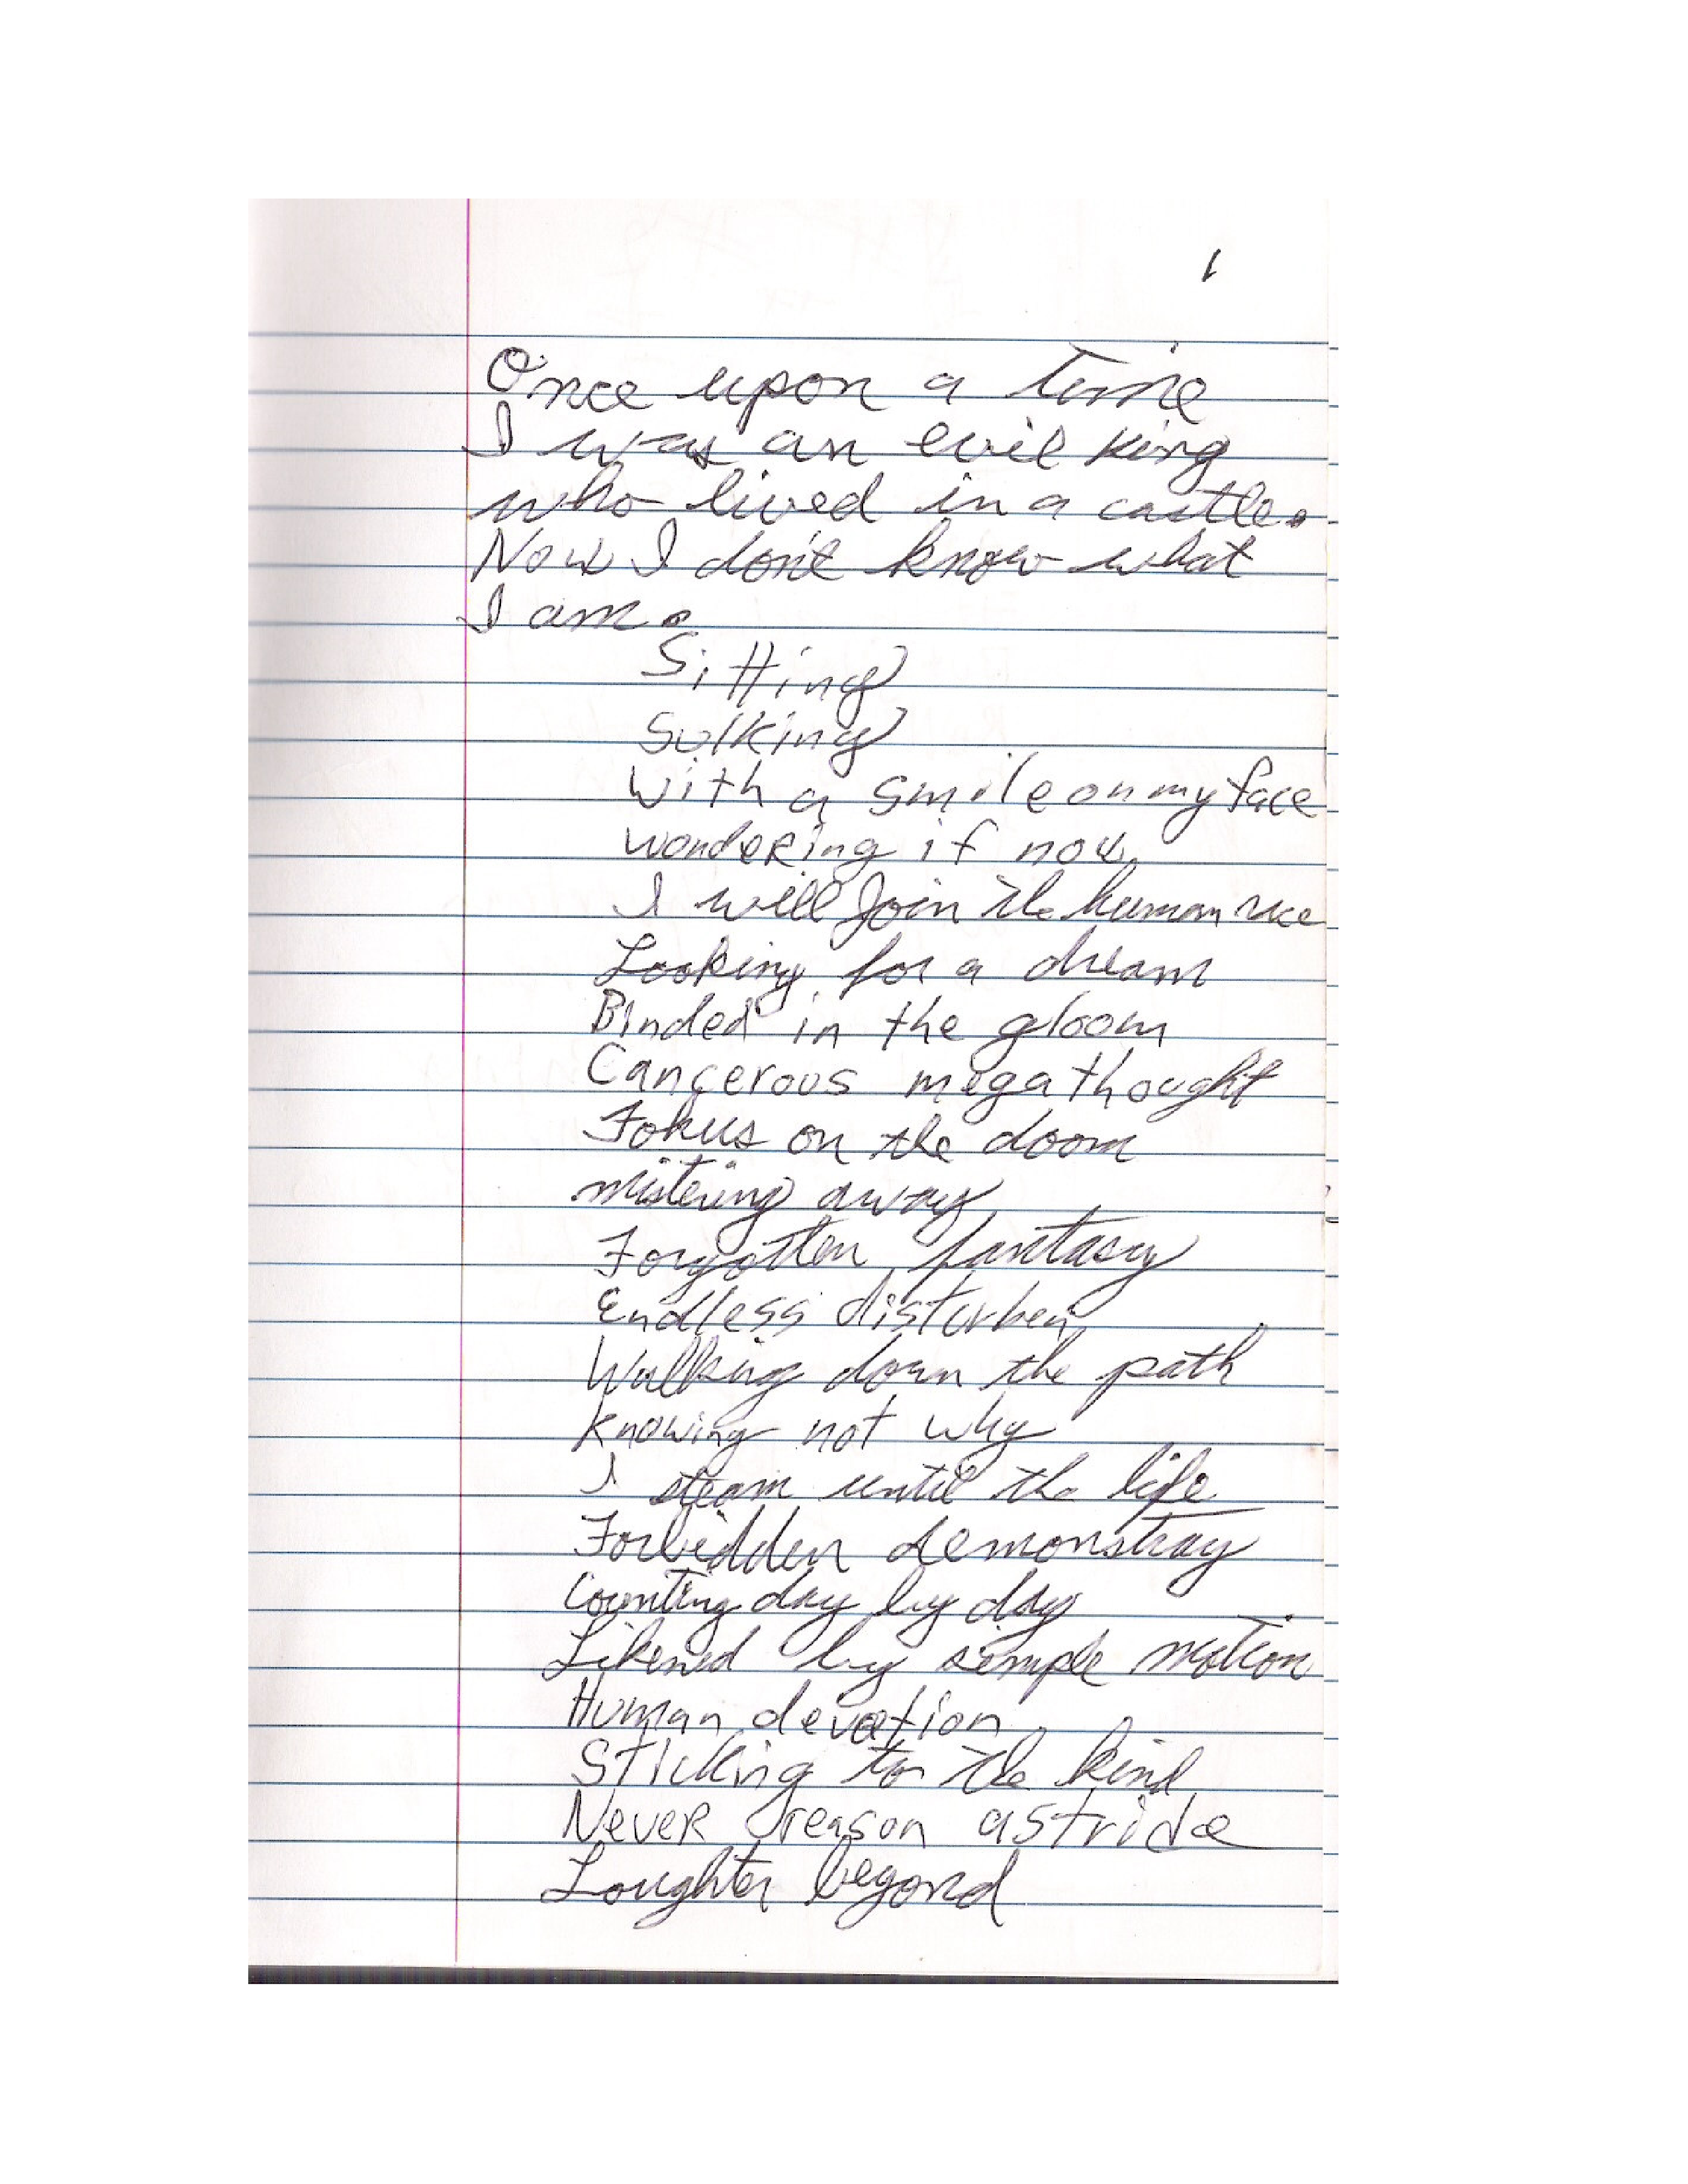 1
Once upon a time
I was an evil king
who lived in a castle.
Now I don't know what
I am.
Sitting
Sulking
With a smile on my face
wondering if now
I will join the human race
Looking for a dream
Binded in the gloom
Cancerous megathought
Fokus on the doom
mistering away
Forgotten fantasy
Endless
Walking down the path
Knowing not why
I steam until the life
Forbidden demonstray
Counting day by day
Likened by simple motion
Human devotion
Sticking to the kind
Never reason astride
Loughter beyond